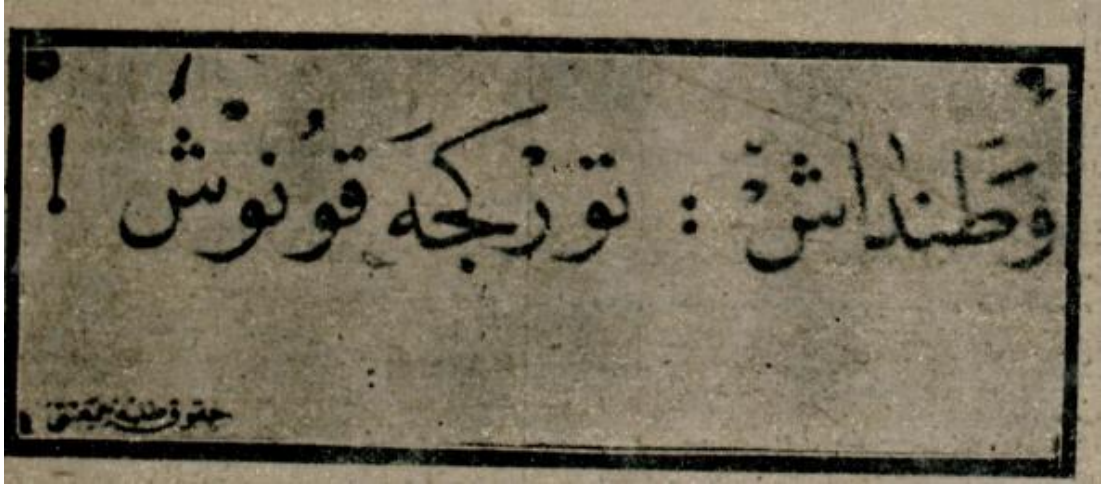 وَطَنداشْ : تورْكجَه قونُوشْ !
حقوق طلبه جمعيتى